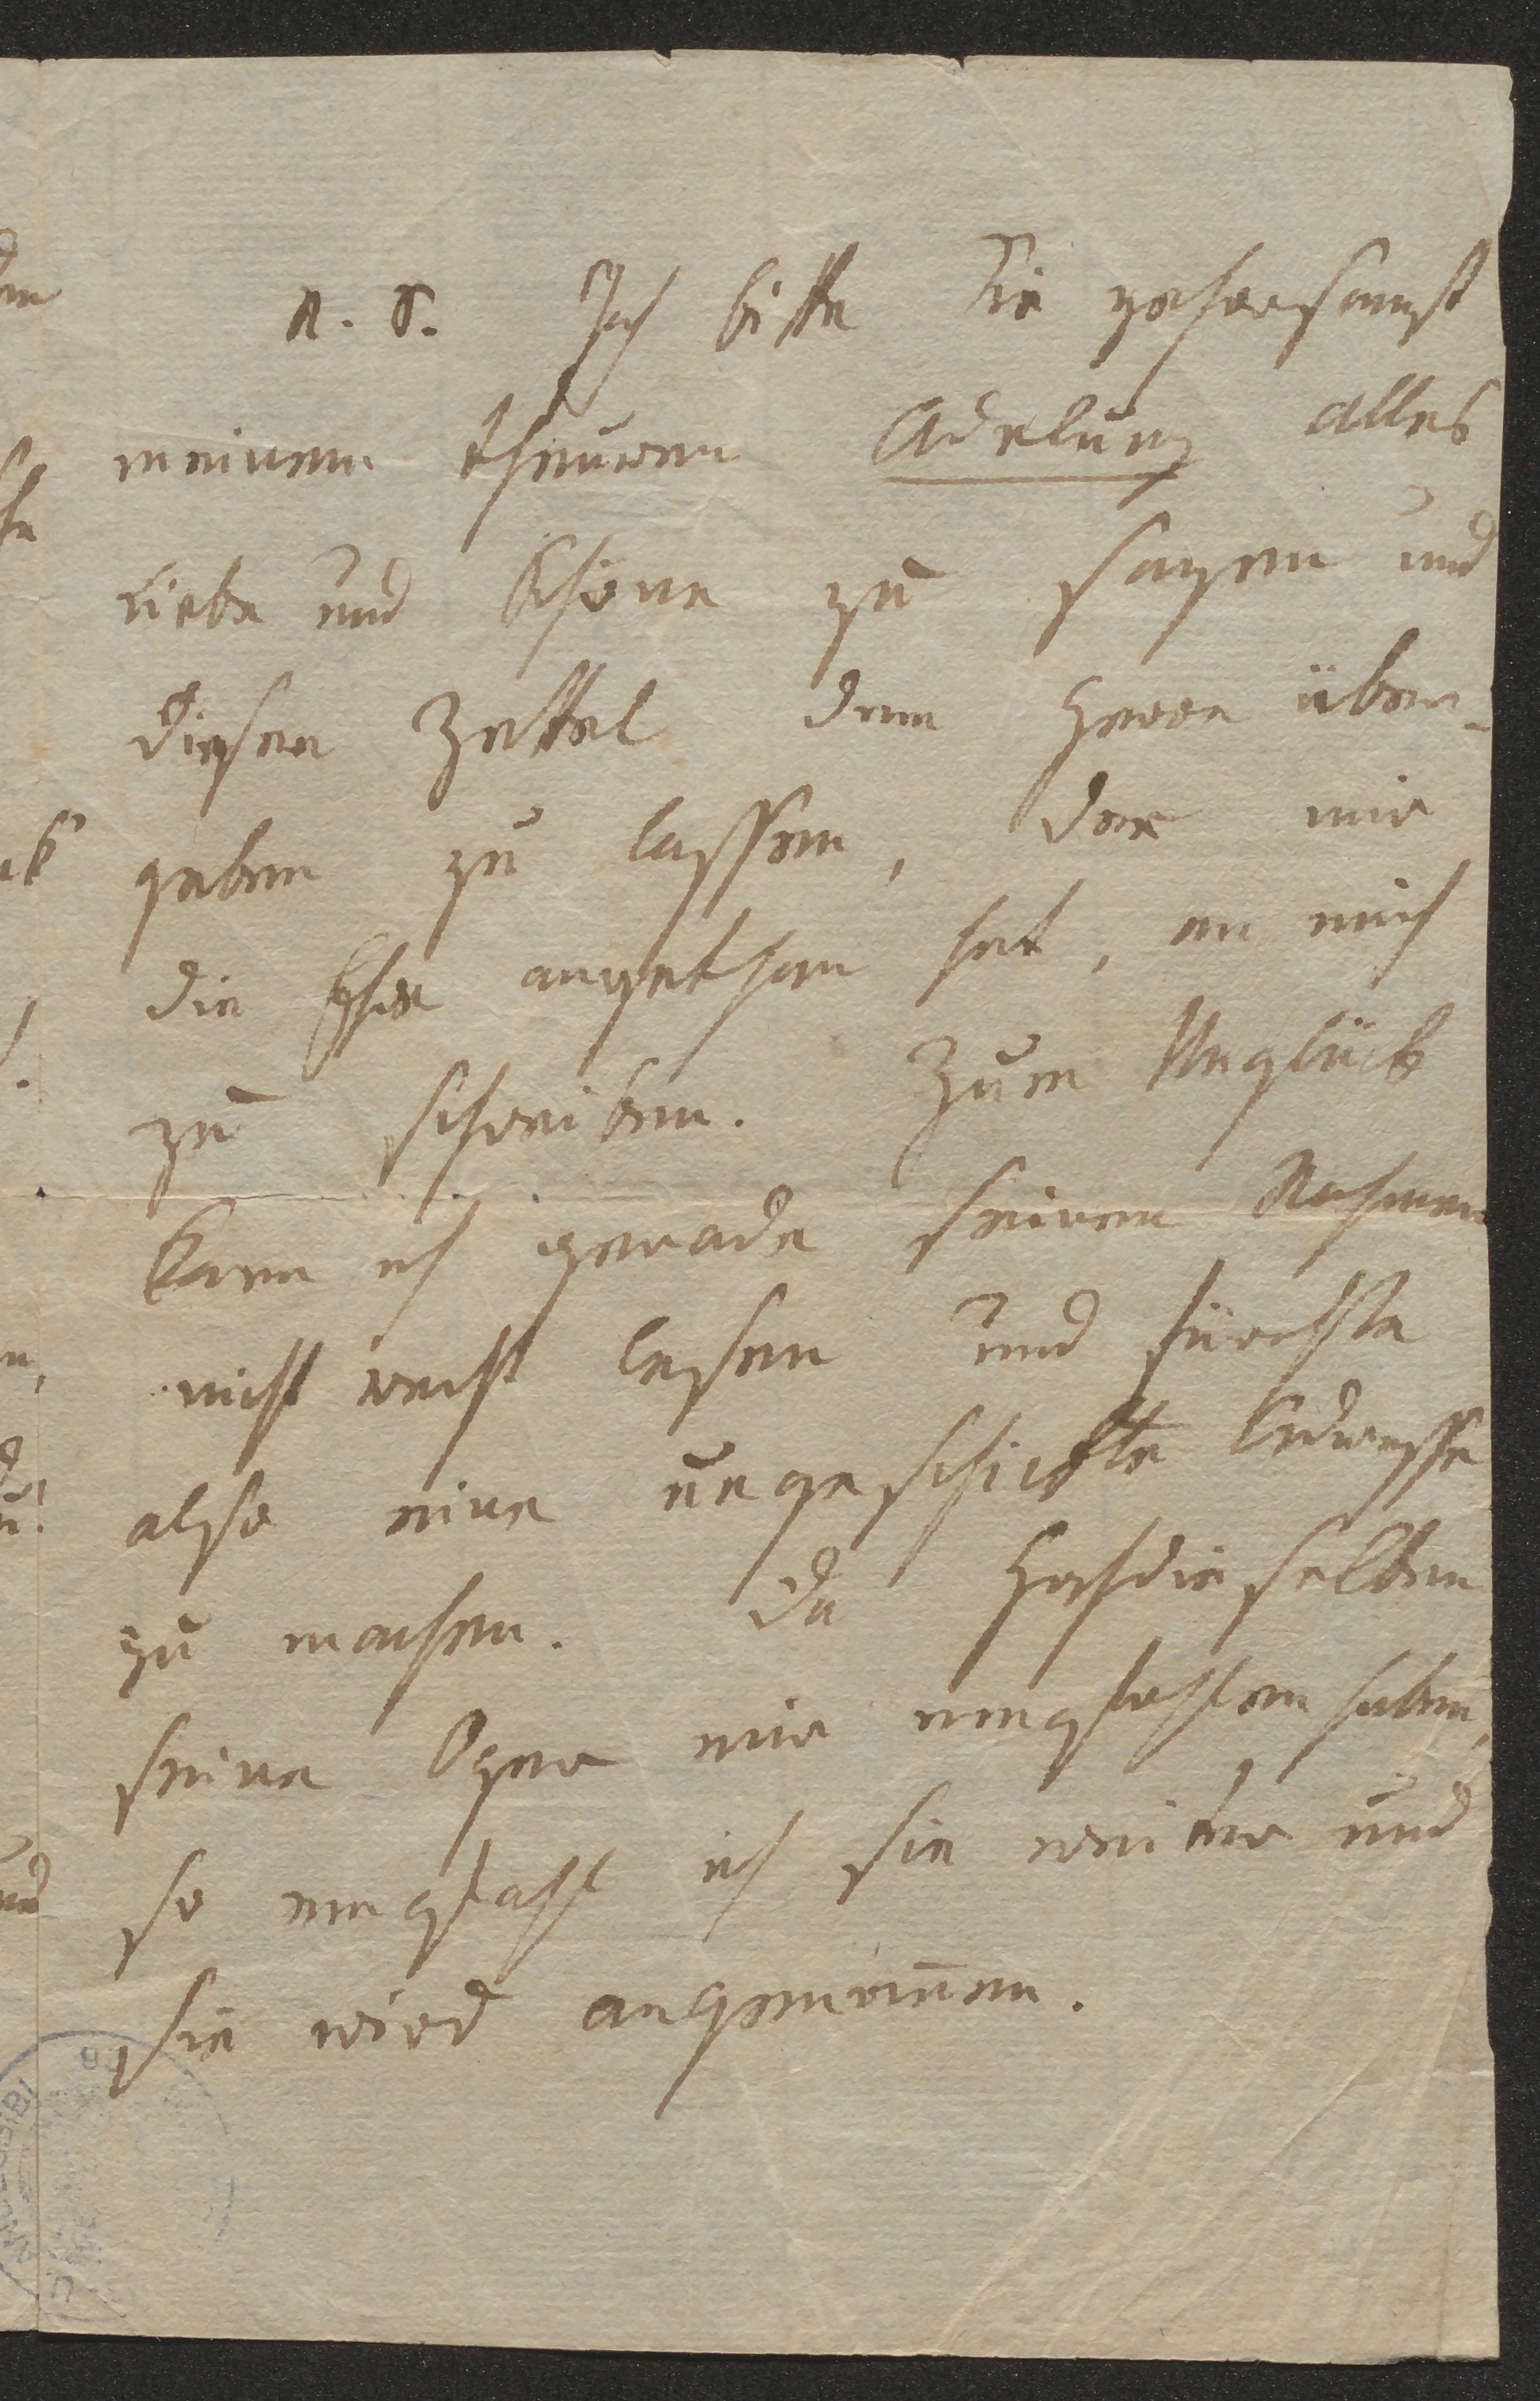 N. S. Ich bitte Sie gehorsamst
meinem theuren Adelung alles
Liebe und Schöne zu sagen und
diesen Zettel dem Herrn über-
geben zu lassen, der mir
die Ehre angethan hat, an mich
zu schreiben. Zum Unglück
kann ich gerade seinen Nahmen
nicht recht lesen und fürchte
also eine ungeschickte Adresse
zu machen. Da Hochdieselben
seine Oper mir empfohlen haben,
so empfahl ich sie weiter und
sie wird angenom̄en.